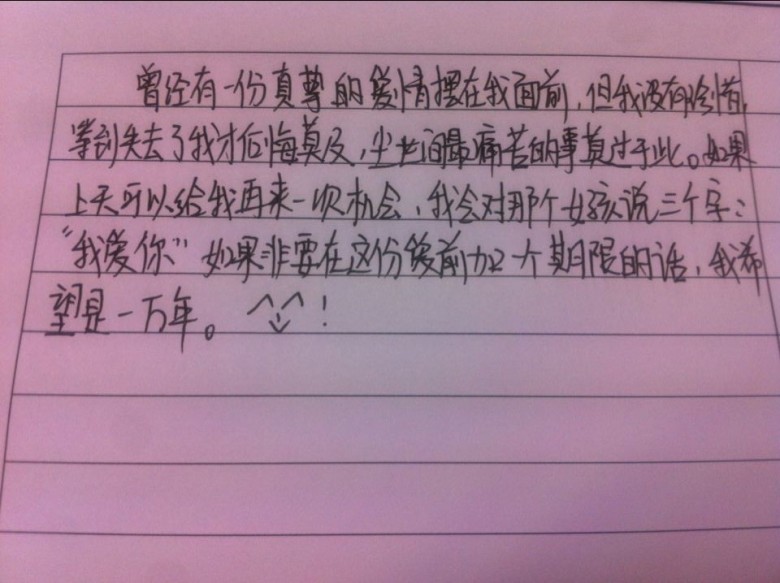 曾经有一份真尊的爱情摆在我面前，但我没有珍惜，
等到失去了我才后悔莫及，尘世间最痛苦的事莫过于此。如果
上天可以给我再来一次机会，我会对那个女孩说三个字：
“我爱你”如果非要在这份爱前加一个期限的话，我希
望是一万年。^_^！